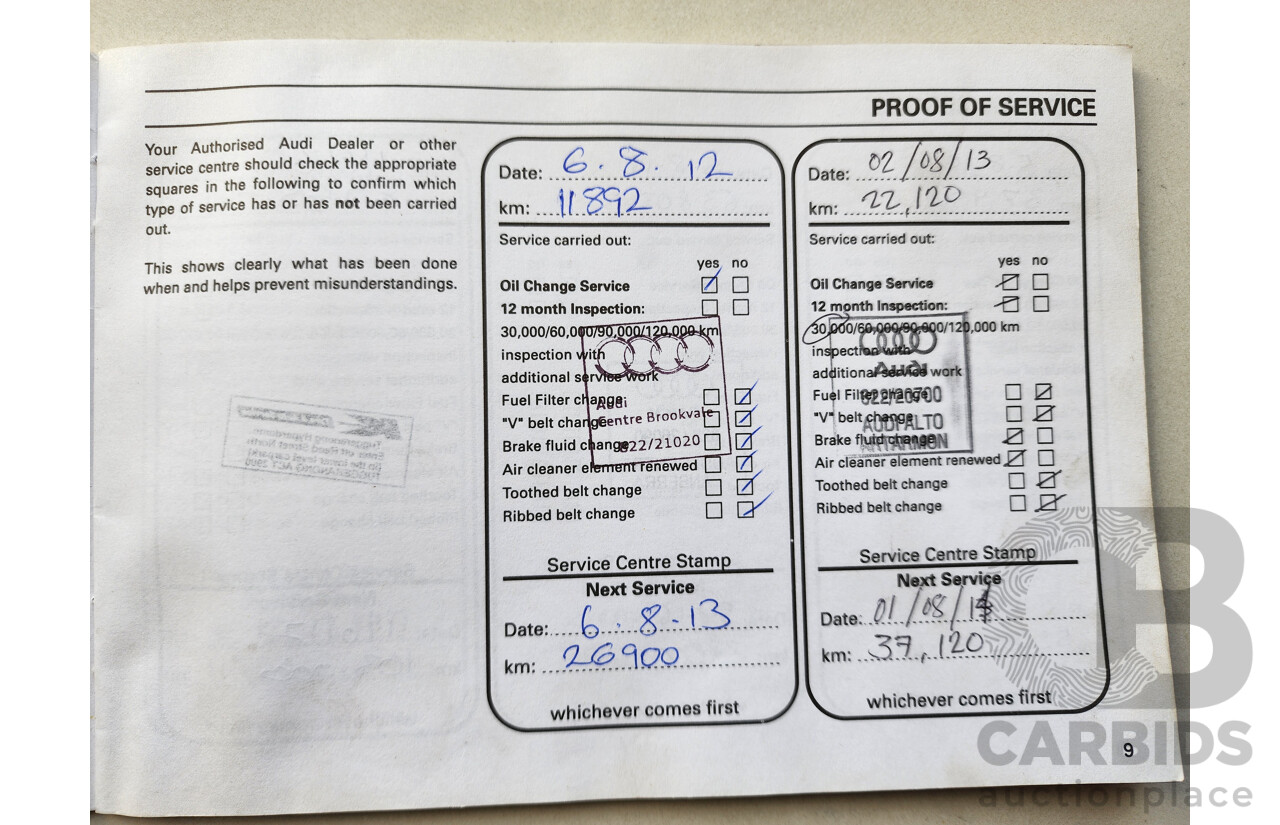 PROOF OF SERVICE
Your Authorised Audi Dealer or other
service centre should check the appropriate
squares in the following to confirm which
type of service has or has not been carried
out.
This shows clearly what has been done
when and helps prevent misunderstandings.
Date: 6.8.12
km: 11892
Service carried out:
yes no
Oil Change Service
12 month Inspection:
30,000/60,000/90,000/120,000 km
inspection with
additional service work
Fuel Filter change
"V" belt change
Brake fluid change
Air cleaner element renewed
Toothed belt change
Ribbed belt change
Audi
Centre Brookvale
822/21020
Service Centre Stamp
Next Service
Date: 6.8.13
km: 26900
whichever comes first
Date: 02/08/13
km: 22,120
Service carried out:
yes no
Oil Change Service
12 month Inspection:
30,000/60,000/90,000/120,000 km
inspection with
additional service work
Fuel Filter change
"V" belt change
Brake fluid change
Air cleaner element renewed
Toothed belt change
Ribbed belt change
Audi
822/20700
AUDI ALTO
ARTARMON
Service Centre Stamp
Next Service
Date: 01/08/14
km: 37,120
whichever comes first
9
CARBIDS
auctionplace